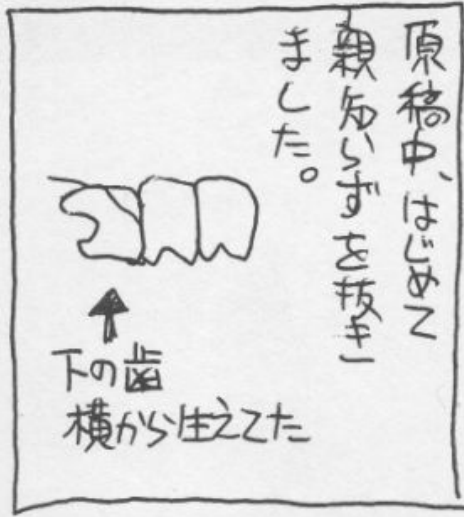 原稿中、はじめて
親知らずを抜き
ました。
下の歯
横から生えてた